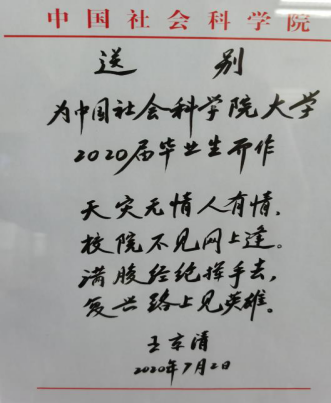 中国社会科学院
送别
为中国社会科学院大学
2020届毕业生而作
天灾无情人有情，
校院不见网上逢。
满腹经纶挥手去，
复兴路上见英雄。
王京清
2020年7月2日